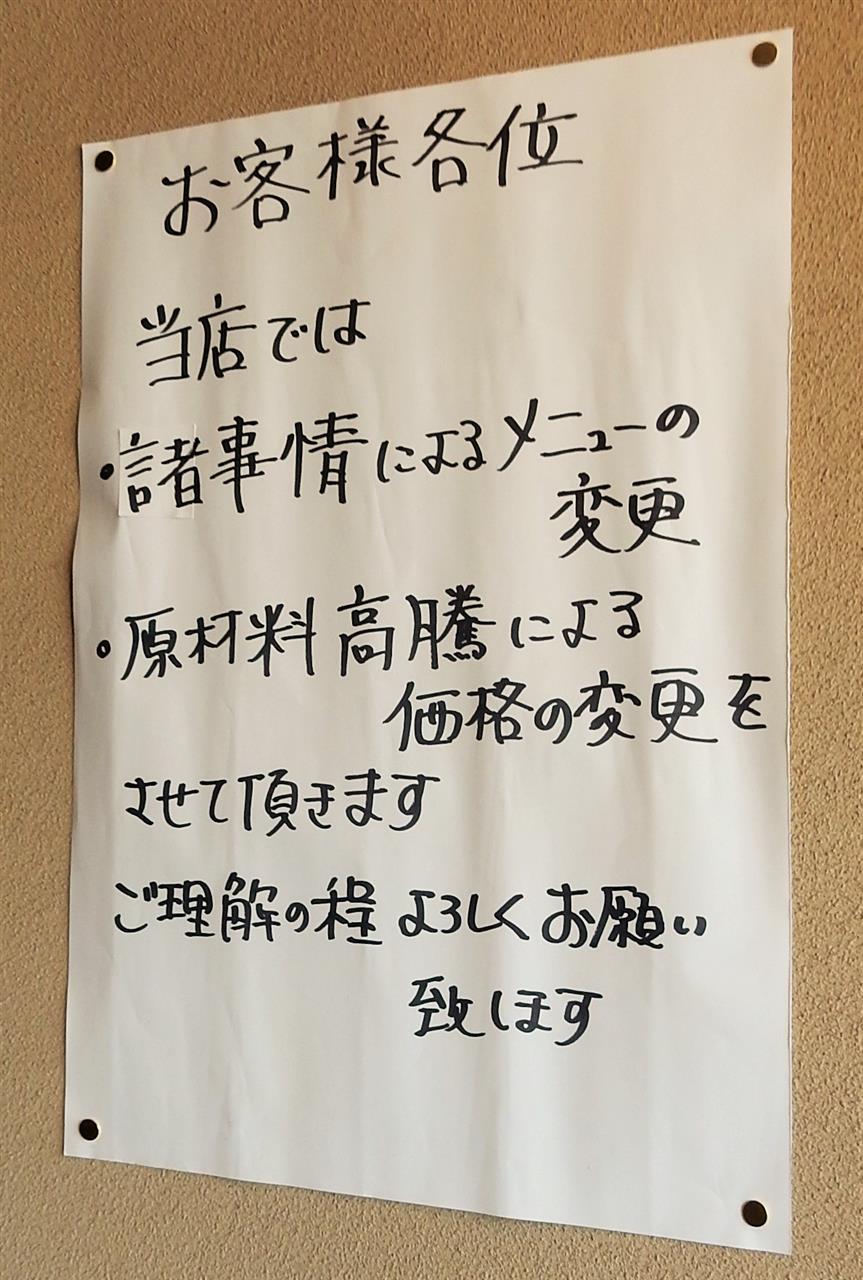 お客様各位
当店では
・諸事情によるメニューの
変更
・原材料高騰による
価格の変更を
させて頂きます
ご理解の程よろしくお願い
致します